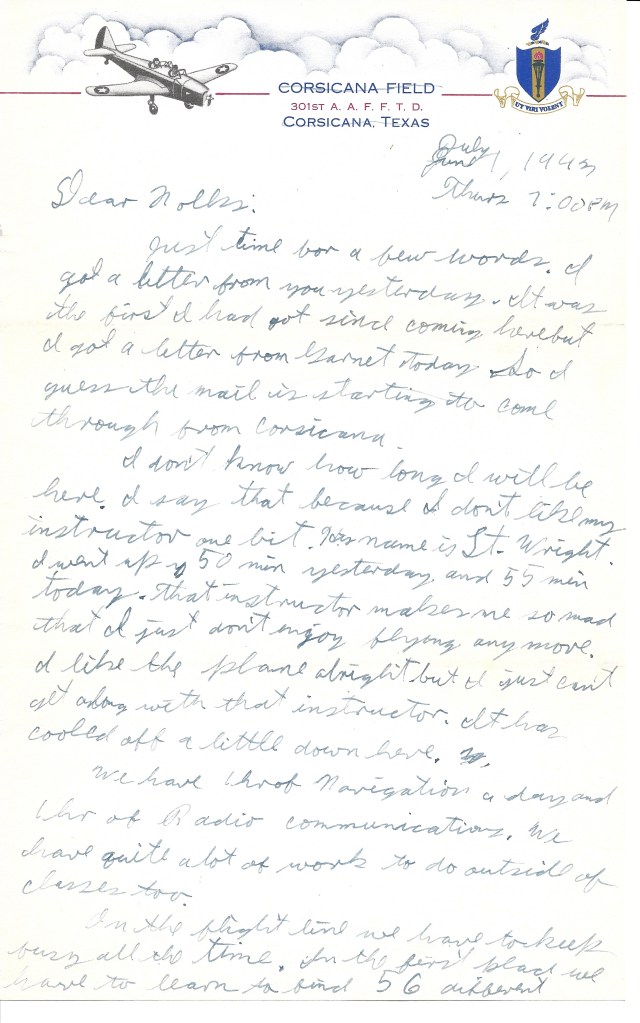 CORSICANA FIELD
301ST A. A. F. F. T. D.
CORSICANA, TEXAS
UT VIRI VOLENT
July
June 1, 1943
Thurs 7:00 PM
Dear Folks:
Just time for a few words. I
got a letter from you yesterday. It was
the first I had got since coming here but
I got a letter from Garnet today. So I
guess the mail is starting to come
through from Corsicana.
I don't know how long I will be
here. I say that because I don't like my
instructor one bit. His name is Lt. Wright.
I went up 50 min yesterday and 55 min
today. That instructor makes me so mad
that I just don't enjoy flying any more.
I like the plane alright but I just can't
get along with that instructor. It has
cooled off a little down here.
We have 1 hr of Navigation a day and
1 hr of Radio communications. We
have quite a lot of work to do outside of
classes too.
On the flight line we have to keep
busy all the time. In the first place we
have to learn to find 56 different